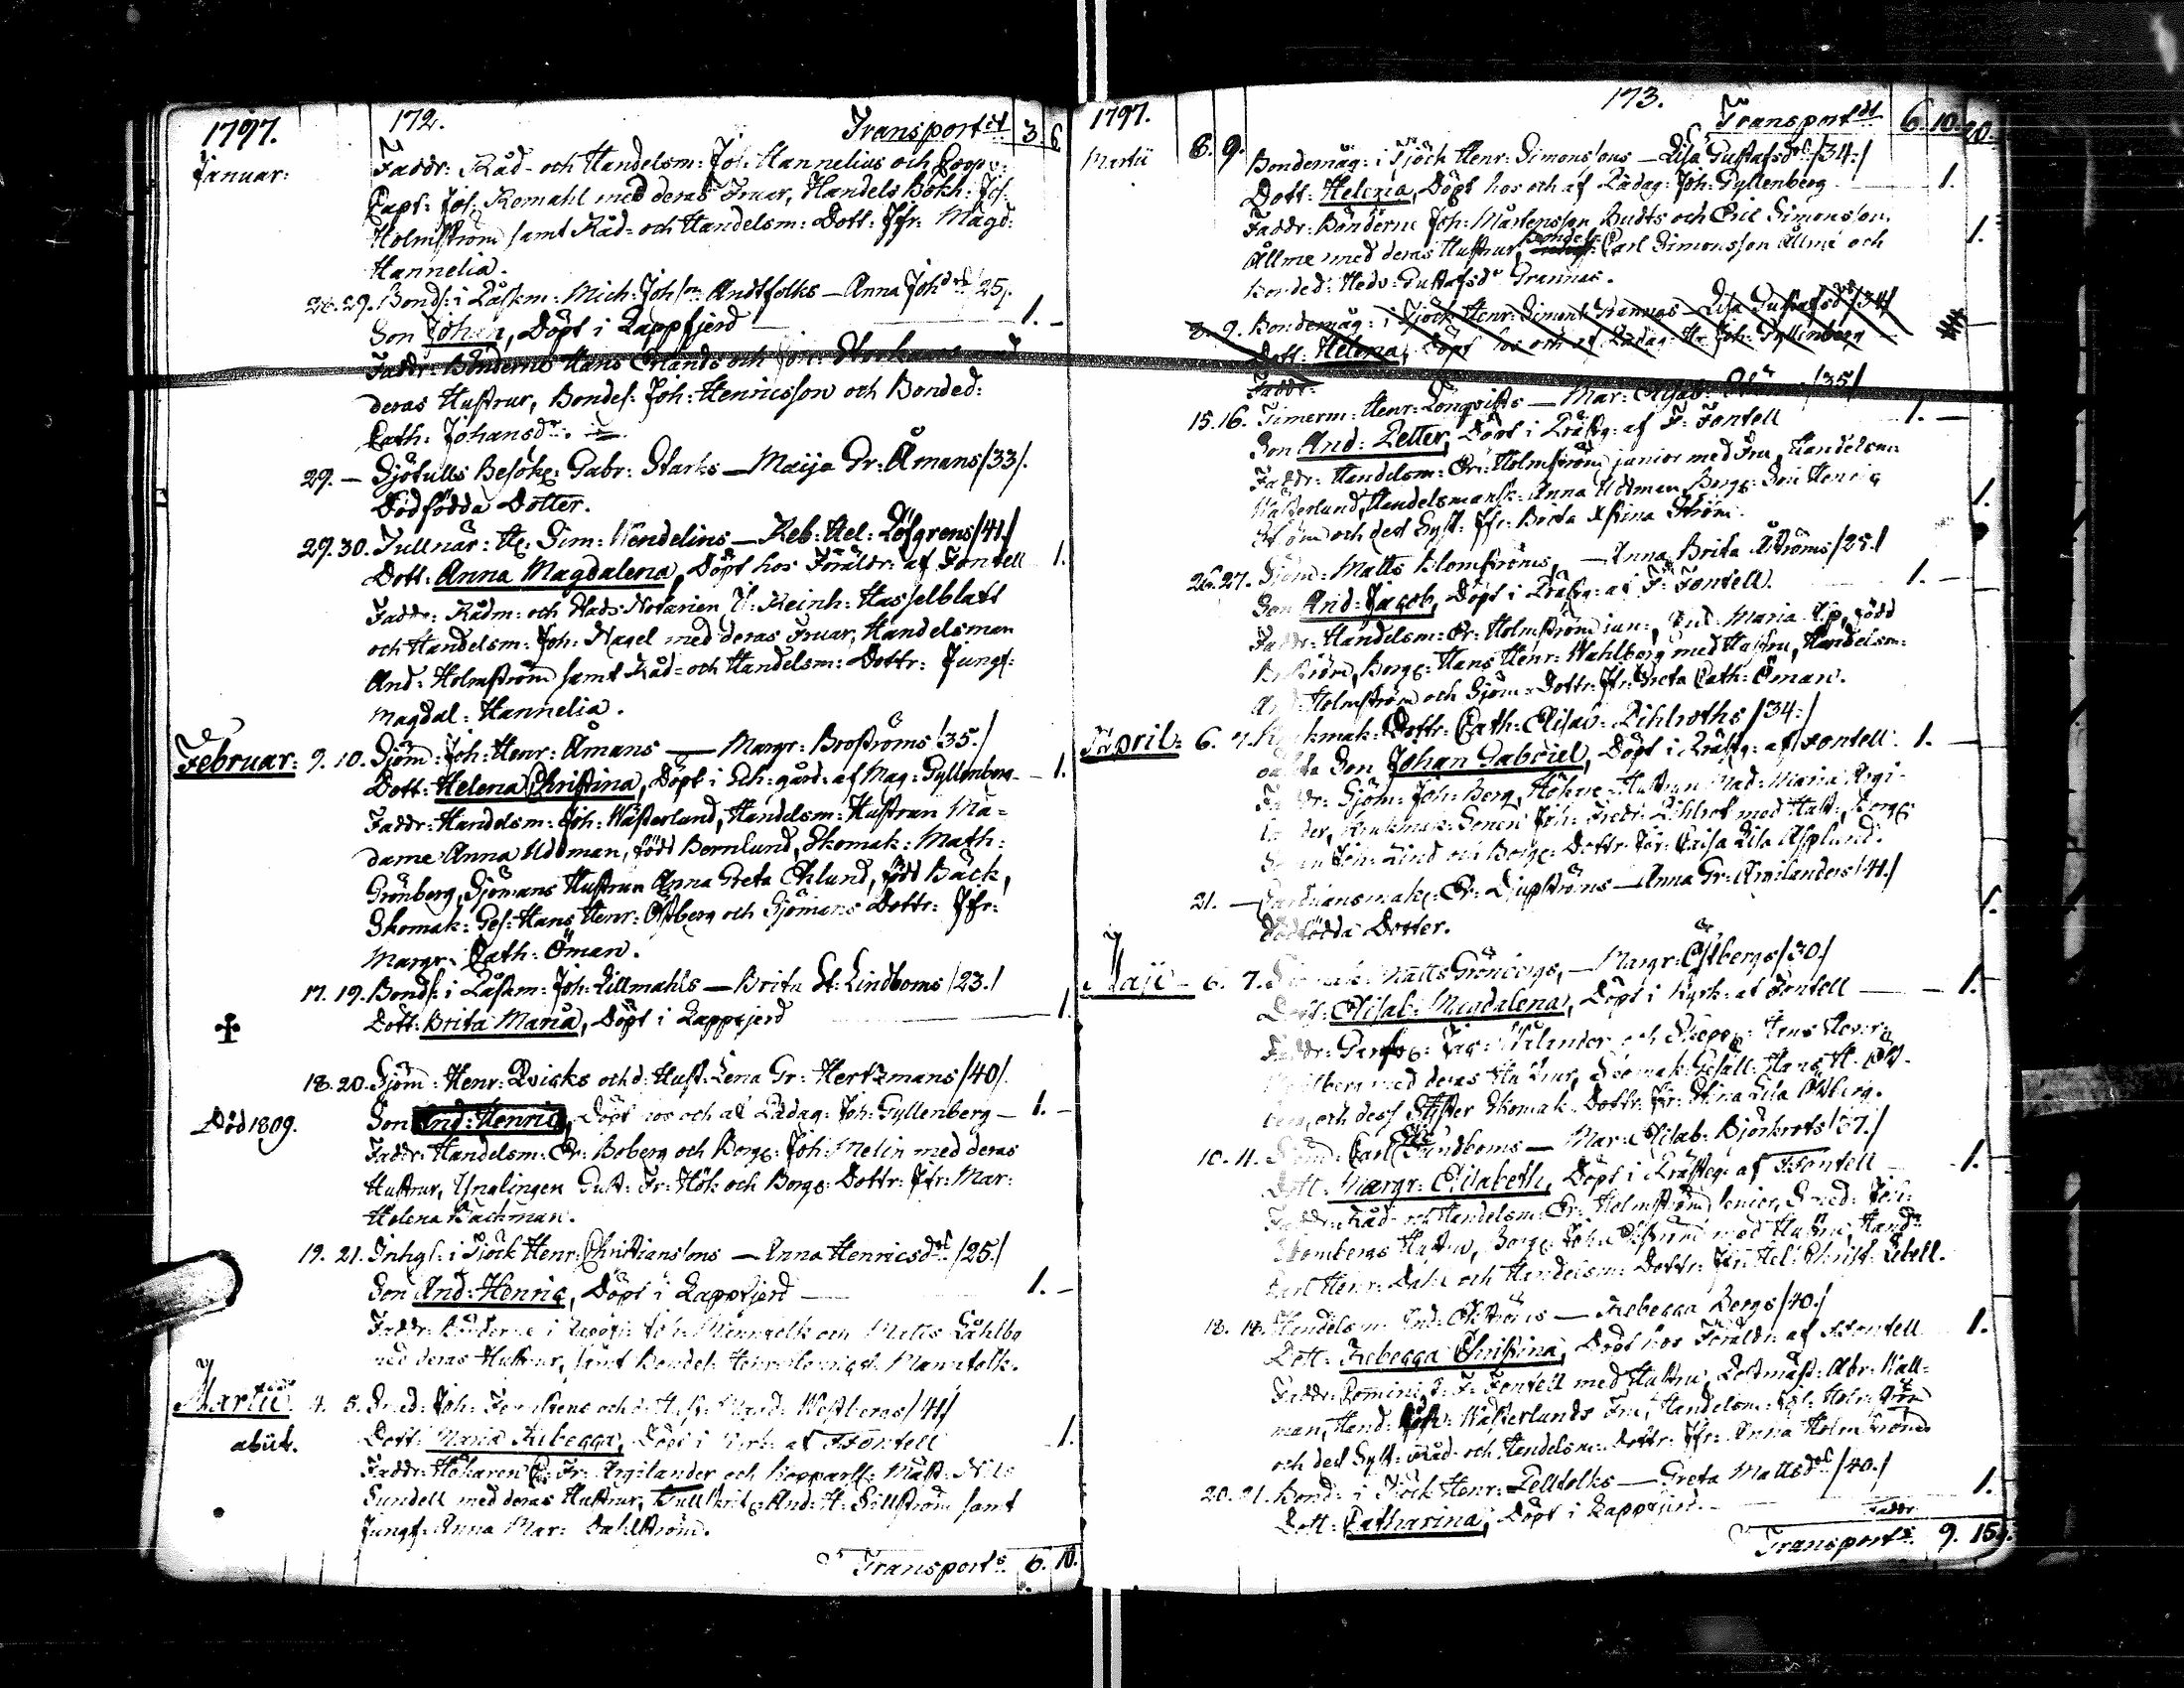 1797.
172.
Transport et 3 6
Januar:
Faddr: Råd- och Handelsm: Joh: Hannelius och
Capt: Joh: Komahl med deras Fruar, Handels Bokh: Jos:
Holmström samt Råd- och Handelsm: Dott: Jfr: Magd:
Hannelia.
28. 29. Bonds: i Låssm: Mich: Johson Andtfolks — Anna Johdrs /25/.
Son Johan, Döpt i Lappfjerd — 1. -
Faddr: Bönderne Hans Erlands och
deras Hustrur, Bondes: Joh: Henricsson och Bonded:
Cath: Johansdr.
29. — Sjötulls Besök: Gabr: Starks — Maija Gr: Åmans /33/.
Dödfödda Dotter.
29. 30. Tullnär: H: Sim: Wendelins — Reb: Hel: Löfgrens /41/
Dott: Anna Magdalena, Döpt hos Föräldr: af Fontell 1.
Faddr: Rådm: och Stads Notarien J: Reinh: Hasselblatt
och Handelsm: Joh: Nagel med deras Fruar, Handelsman
And: Holmström samt Råd- och Handelsm: Dottr: Jungf:
Magdal: Hannelia.
Februar: 9. 10. Sjöm: Joh: Henr: Åmans — Margr: Broströms /35./
Dott: Helena Christina, Döpt i gård: af Mag: Gyllenberg — 1.
Faddr: Handelsm: Joh: Wästerlund, Handelsm: Hustrun Ma-
dame Anna Uddman, född Bernlund, Skomak: Math:
Grönberg, Sjömans Hustrun Anna Greta Eklund, född Bäck,
Skomak: Ges: Hans Henr: Östberg och Sjömans Dottr: Jfr:
Margr: Cath: Öman.
17. 19. Bonds: i Låssm: Joh: Lillmahls — Brita St: Lindboms /23./
Dott: Brita Maria, Döpt i Lappfjerd 1.
18. 20. Sjöm: Henr: Qvicks och d: Hust: Lena Gr: Hertzmans /40/.
Son And: Henric, Döpt hos och af Lådag: Joh: Gyllenberg — 1. -
Död 1809.
Faddr: Handelsm: Er: Boberg och Borg: Joh: Melin med deras
Hustrur, Ynglingen Gust: Fr: Hök och Borg: Dottr: Jfr: Mar:
Helena Backman.
19. 21. Inhys: i Tjöck Henr: Christianssons — Anna Henricsdrs /25./
Son And: Henric, Döpt i Lappfjerd — 1. -
Faddr: Bönderne i Joh: Mannfolk och Matts Låhlbo
med deras Hustrur, samt Bondes: Henr: Mannfolk.
Martii 4. 5. Smed: Joh: och d: Hust: Magd: Westbergs /41/
abiit. Dott: Maria Rebecca, Döpt i Kyrk: af F: Fontell 1.
Faddr: Hökaren C: Fr: Argilander och Kopparsl: Mäst: Nils
Sundell med deras Hustrur, Tullskrif: And: H: Sillström samt
Jungf: Anna Mar: Dahlström.
Transports 6. 10.
1797.
173.
Transport dt 6. 10. 20.
Martii 8. 9. Bondemåg: i Tjöck Henr: Simonssons — Lisa Gustafsdrs /34:/
Dott: Helena, Döpt hos och af Lådag: Joh: Gyllenberg 1.
Faddr: Bönderne Joh: Mårtensson Rudts och Eric Simonsson
Ållme med deras Hustrur, Bondes: Carl Simonsson Ållme och
Bonded: Hedv: Gustafsdr Grannas.
8. 9. Bondemåg: i Tjöck Henr: Simons Grannas — Lisa Gustafsdrs /34/
Dott: Helena, Döpt hos och af Lådag: Hr Joh: Gyllenberg
Faddr:
15. 16. Timerm: Henr: Lönqvists — Mar: Elisab: /35/
Son And: Petter, Döpt i Prästg: af F: Fontell 1. —
Faddr: Handelsm: Er: Holmström junior med Fru, Handelsm
Wästerlund, Handelsmansk: Anna Uddman Borg: Son Henric
Ström och dess Syst: Jfr: Brita Stina Ström.
26. 27. Sjöm: Matts Blomströms, — Anna Brita Åströms /25./
Son And: Jacob, Döpt i Prästg: af F: Fontell. 1. —
Faddr: Handelsm: Er: Holmström jun:, Mad: Maria Alp, född
Borg: Hans Henr: Wahlberg med Hustru, Handelsm:
And: Holmström och Sjöm: Dottr: Jfr: Greta Cath: Öman.
April: 6. 7. Krukmak: Dottr: Cath: Elisab: Lihlroths /34:/
oäkta Son Johan Gabriel, Döpt i Prästg: af Fontell. 1. —
Faddr: Sjöm: Joh: Berg, Hökare Hustrun Mad: Maria Argi-
lander, Krukmak: Sonen Joh: Fredr: Lihlrot med Hust:, Borg:
Sonen Joh: Lind och Borg: Dottr: Jfr: Caisa Lisa Asplund.
21. — Er: Diupströms — Anna Gr: Argilanders /41./
Dödfödda Dotter.
Maji 6. 7. Skomak: Matts Grönbergs, — Margr: Östbergs /30./
Dott: Elisab: Magdalena, Döpt i Kyrk: af Fontell — 1.
Faddr: Garfv: Jac: Åkelander och Skepp: Hans Henr:
Wahlberg med deras Hustrur, Skomak: Gesäll: Hans H: Öst-
berg, och dess Syster Skomak: Dottr: Jfr: Stina Lisa Östberg.
10. 11. Sjöm: Carl Sundboms — Mar: Elisab: Björkrots /37./
Dott: Margr: Elisabeth, Döpt i Prästg: af F: Fontell — 1.
Faddr: Råd- och Handelsm: Er: Holmström senior, Smed: Joh:
Blombergs Hustru, Borg: Joh: med Hustru, Handls
Carl Henr: Dahl och Handelsm: Dottr: Jfr: Hel: Christ: Lebell.
18. 18. Handelsm: And: Ekströms — Rebecca Bergs /40./
Dott: Rebecca Christina, Döpt hos Föräldr: af F: Fontell 1.
Faddr: Comminist: F: Fontell med Hustru, Postmäst: Abr: Wall-
man, Hand: Joh: Wästerlunds Fru, Handelsm: Jos: Holmström
och dess Syst: Råd- och Handelsm: Dottr: Jfr: Anna Holmström
20. 21. Bond: i Tjöck Henr: Lellfolks — Greta Mattsdrs /40./
Dott: Catharina, Döpt i Lappfjerd. — 1.
Faddr
Transports 9. 15.